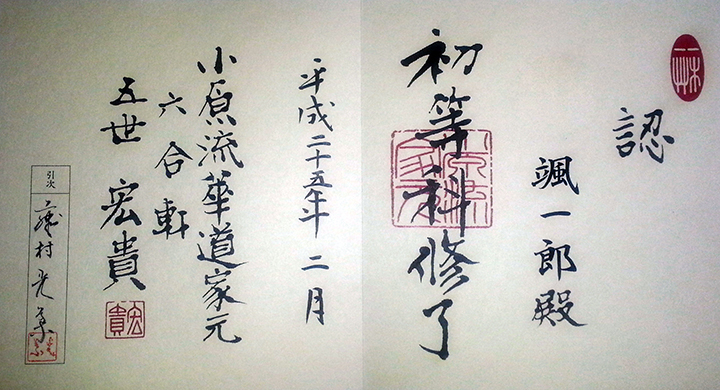 認
颯一郎殿
初等科修了
平成二十五年二月
小原流華道家元
六合軒
五世 宏貴
宏貴
引次
村光